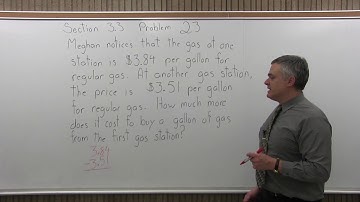 Section 3.3 Problem 23
Meghan notices that the gas at one
station is $3.84 per gallon for
regular gas. At another gas station,
the price is $3.51 per gallon
for regular gas. How much more
does it cost to buy a gallon of gas
from the first gas station?
3.84
-3.51